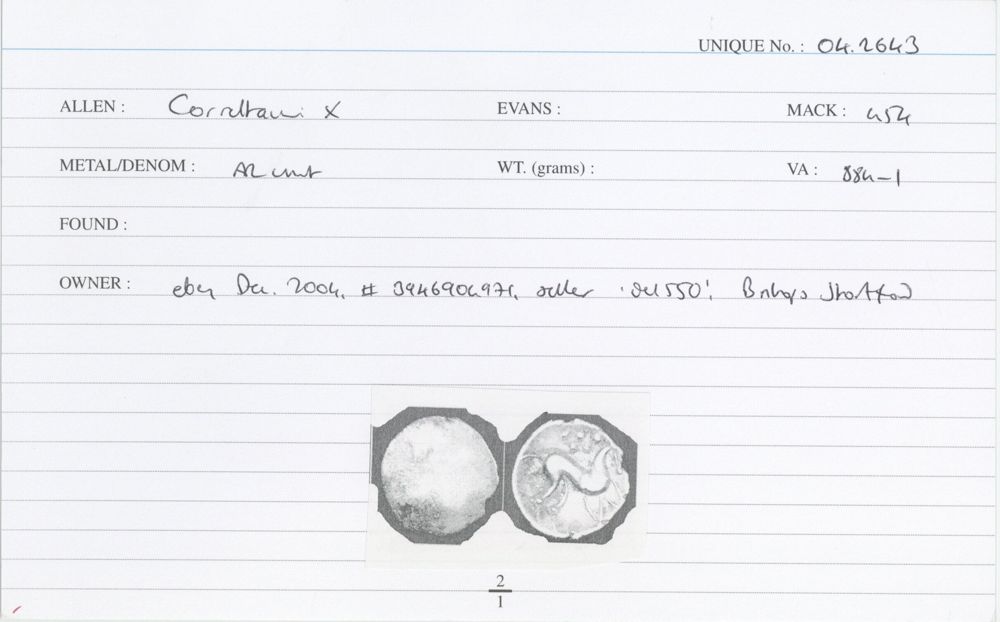 UNIQUE No. : 04.2643
ALLEN : Corieltauvi X EVANS : MACK : 454
METAL/DENOM : AR unit WT. (grams) : VA : 884-1
FOUND :
OWNER : ebay Dec. 2004, # 3946904971, seller 'del550', Bishops Stortford
2
1